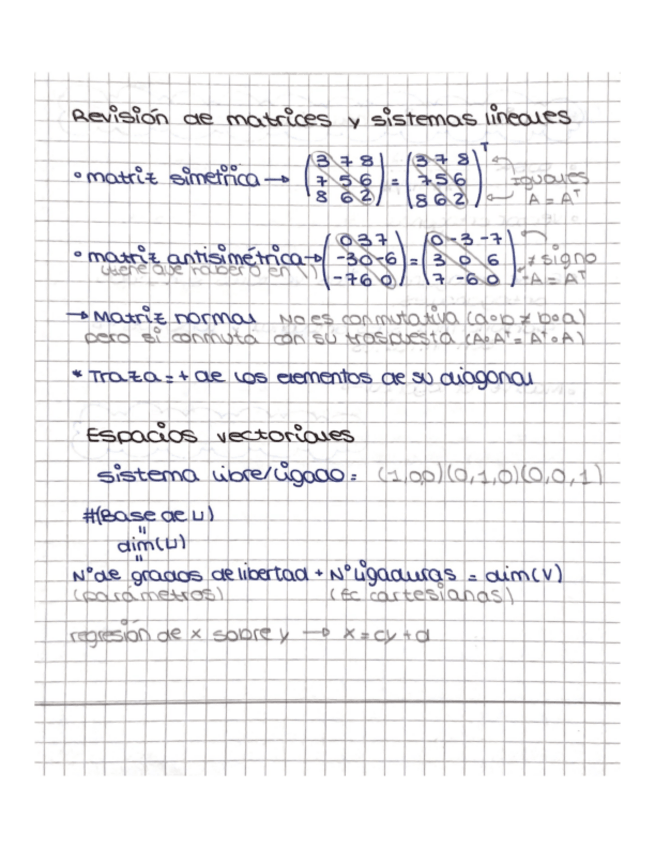 Revisión de matrices y sistemas lineales
• matriz simétrica → (3 7 8 / 7 5 6 / 8 6 2) = (3 7 8 / 7 5 6 / 8 6 2)ᵀ iguales A = Aᵀ
• matriz antisimétrica → (0 3 7 / -3 0 -6 / -7 6 0) = (0 -3 -7 / 3 0 6 / 7 -6 0) ≠ signo -A = Aᵀ
(tiene que haber 0 en \)
→ Matriz normal No es conmutativa (a∘b ≠ b∘a)
pero si conmuta con su traspuesta (A∘Aᵀ = Aᵀ∘A)
* Traza = + de los elementos de su diagonal
Espacios vectoriales
sistema libre/ligado = (1,0,0)(0,1,0)(0,0,1)
#(Base de U)
"
dim(U)
"
Nº de grados de libertad + Nº ligaduras = dim(V)
(parámetros) (Ec cartesianas)
regresión de x sobre y → x = cy + d